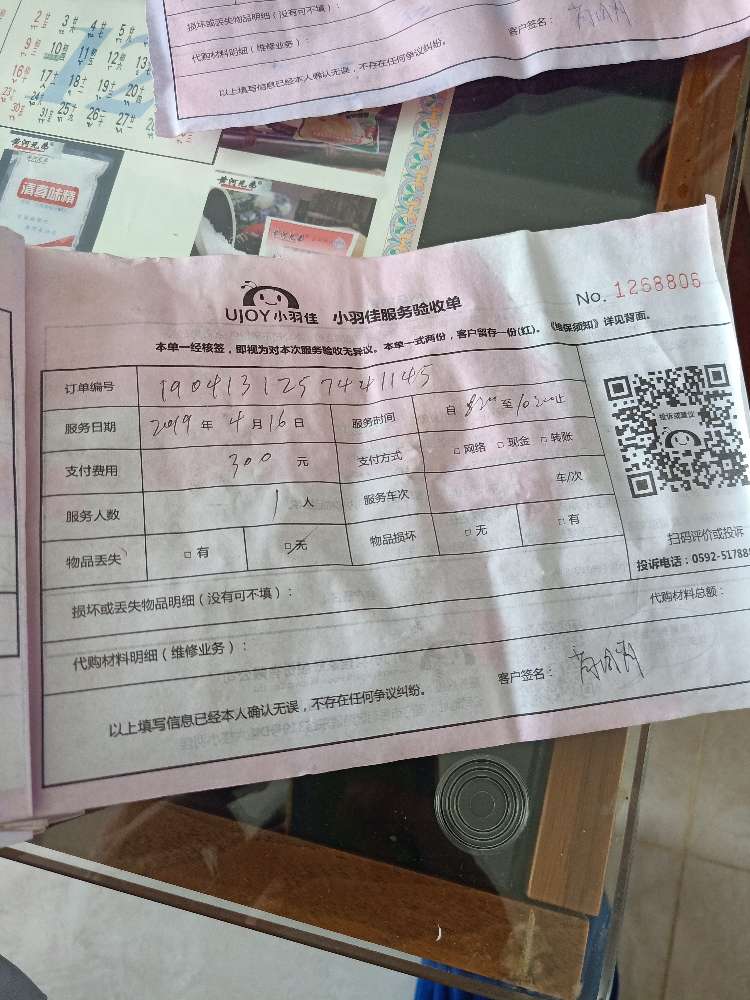 损坏或丢失物品明细（没有可不填）：
代购材料明细（维修业务）：
客户签名：
以上填写信息已经本人确认无误，不存在任何争议纠纷。
黄河兄弟
清真味精
黄河兄弟
UJOY小羽佳 小羽佳服务验收单
No. 1268806
本单一经核签，即视为对本次服务验收无异议。本单一式两份，客户留存一份(红)。《维保须知》详见背面。
订单编号 1904131257441145
服务日期 2019年4月16日 服务时间 自8:00至10:00止
支付费用 300元 支付方式 □网络 □现金 □转账
服务人数 1人 服务车次 车/次
物品丢失 □有 □无 物品损坏 □无 □有
投诉或建议
扫码评价或投诉
投诉电话：0592-51788
损坏或丢失物品明细（没有可不填）：
代购材料总额：
代购材料明细（维修业务）：
客户签名：
以上填写信息已经本人确认无误，不存在任何争议纠纷。